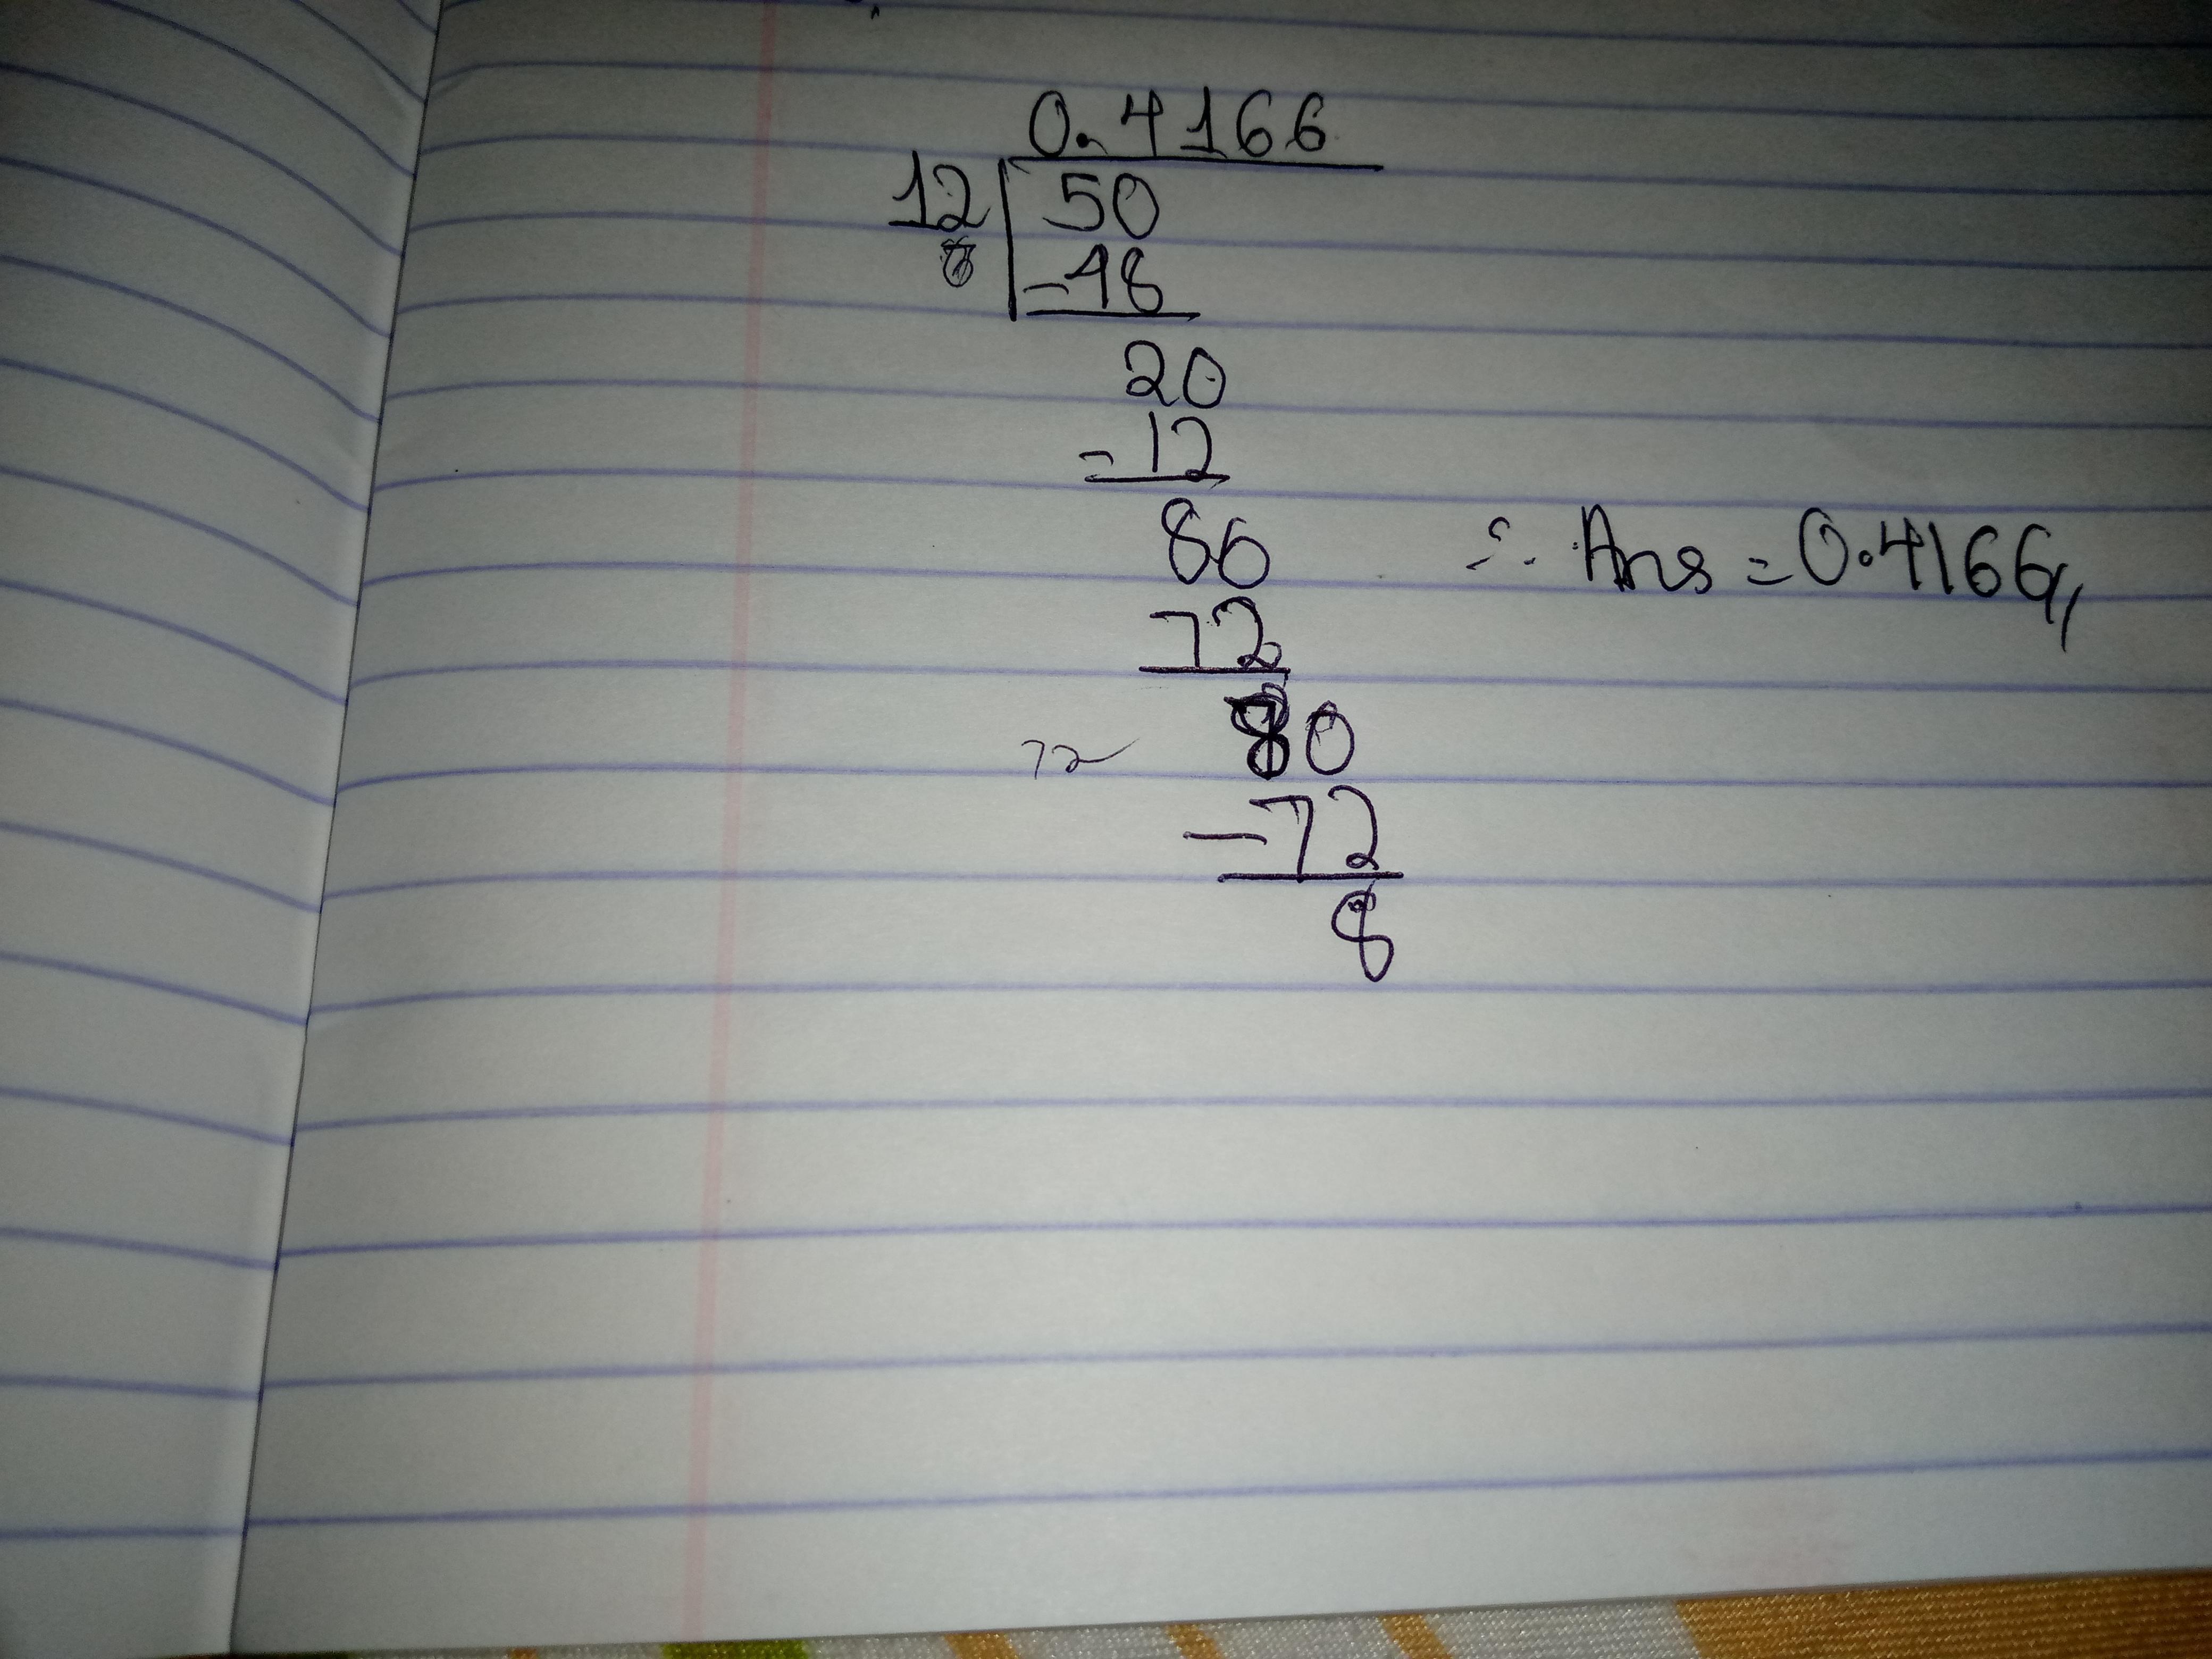 0.4166
12 50
-48
20
-12
80
72
80
72
-72
8
∴ Ans = 0.4166,,